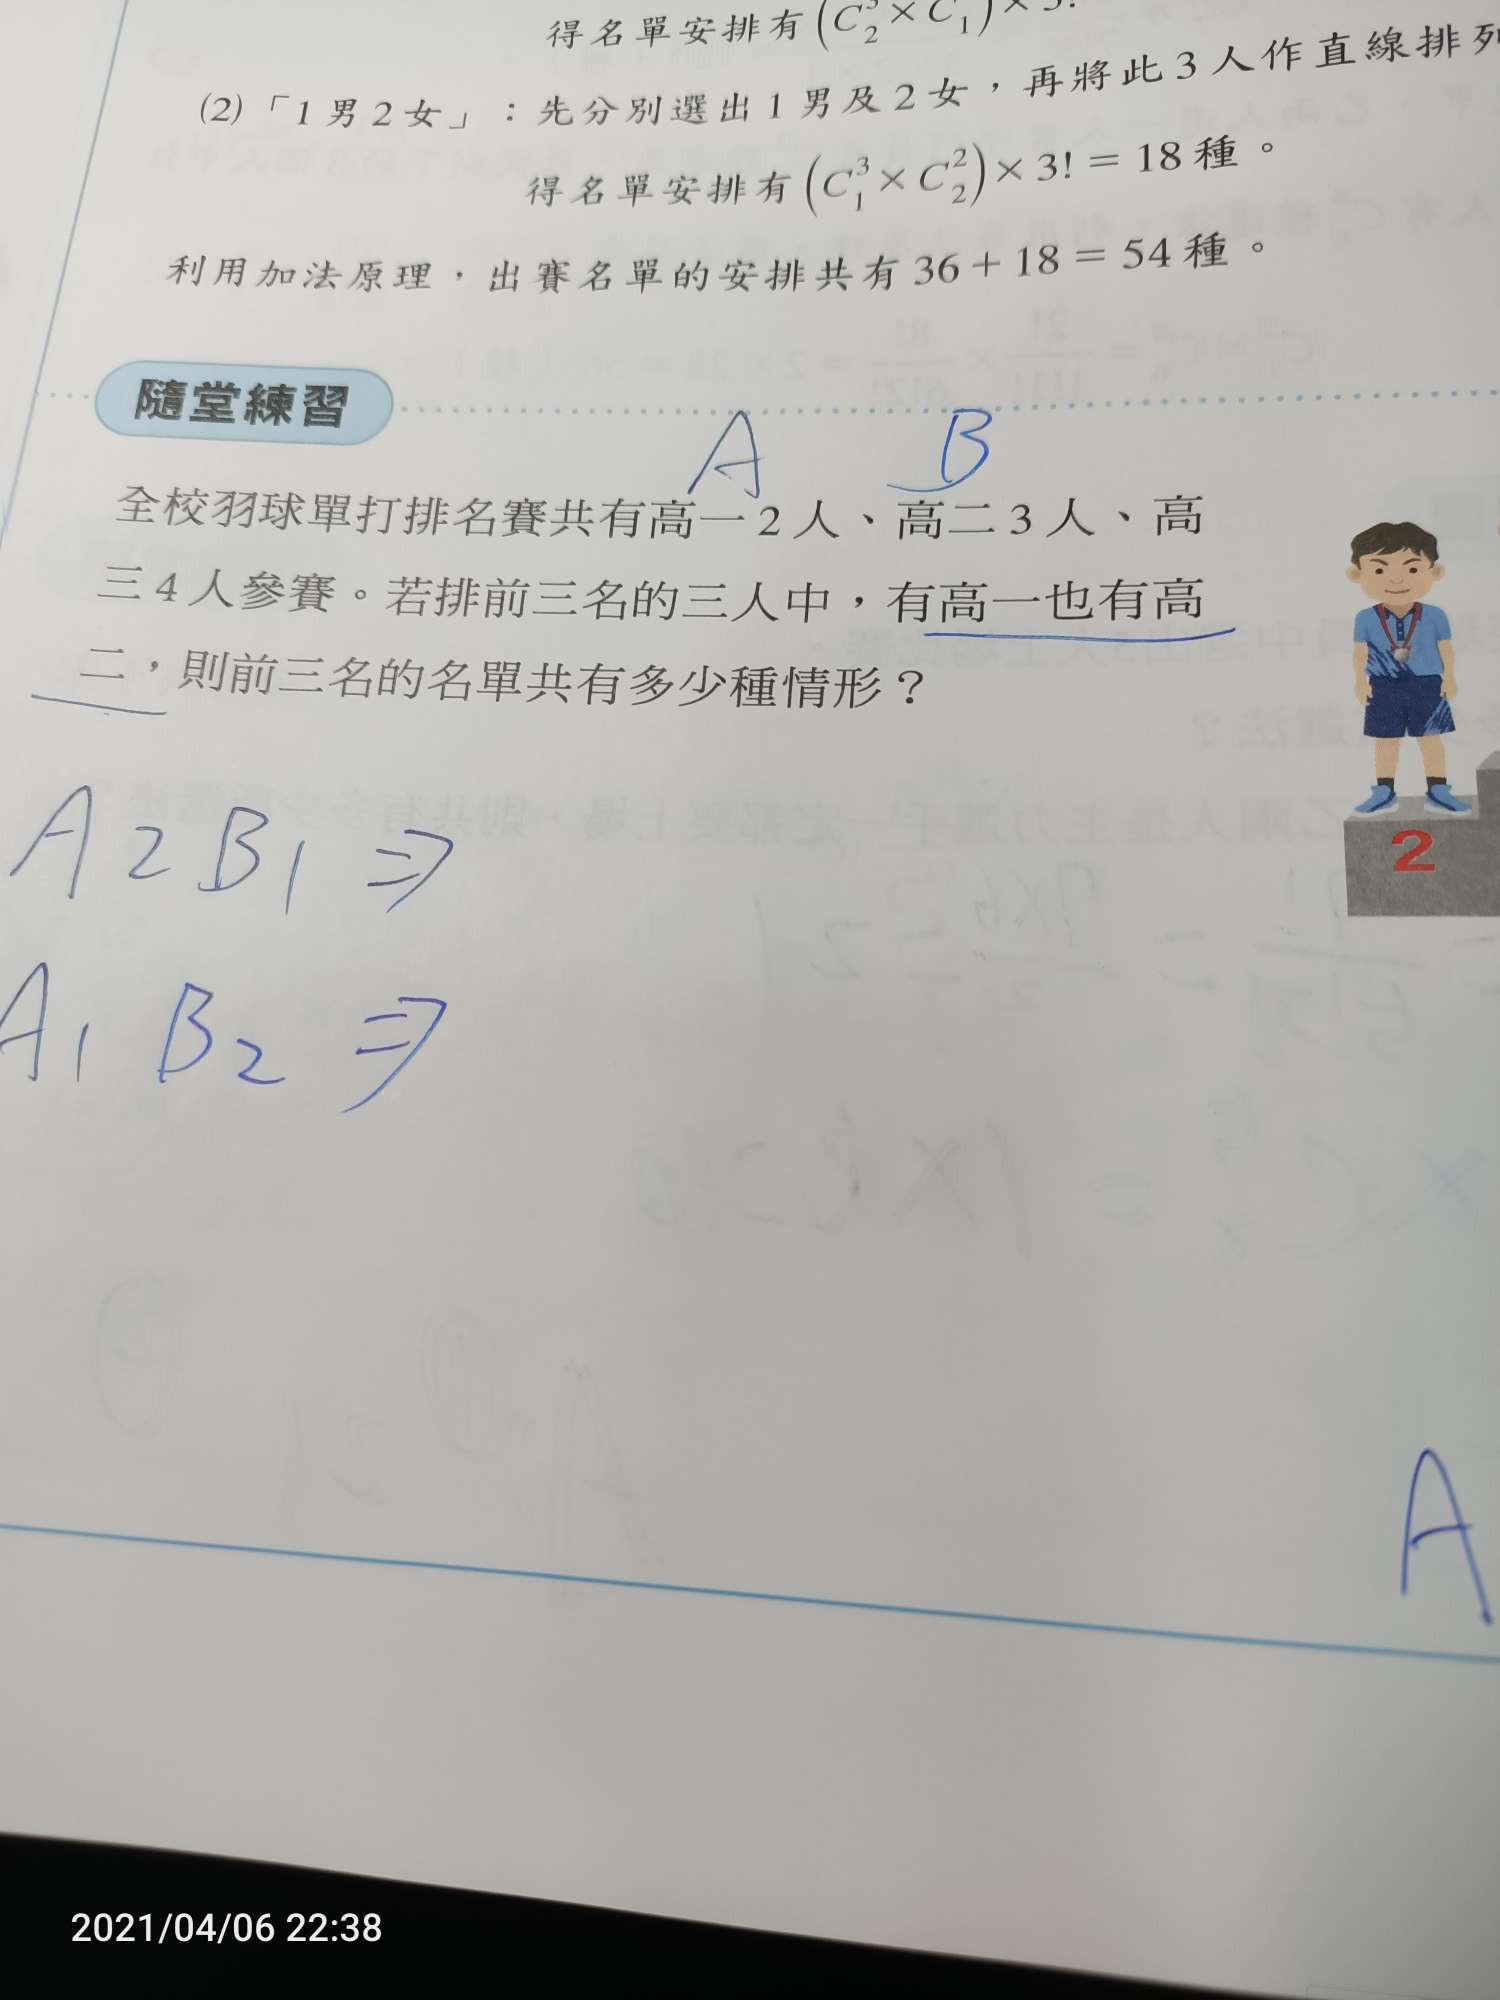 得名單安排有(C³₂×C₁)×3!
(2)「1男2女」:先分別選出1男及2女,再將此3人作直線排列
得名單安排有(C³₁×C²₂)×3!=18種。
利用加法原理,出賽名單的安排共有36+18=54種。
隨堂練習
A B
全校羽球單打排名賽共有高一2人、高二3人、高
三4人參賽。若排前三名的三人中,有高一也有高
二,則前三名的名單共有多少種情形?
2
A2B1⇒
A1B2⇒
A
2021/04/06 22:38